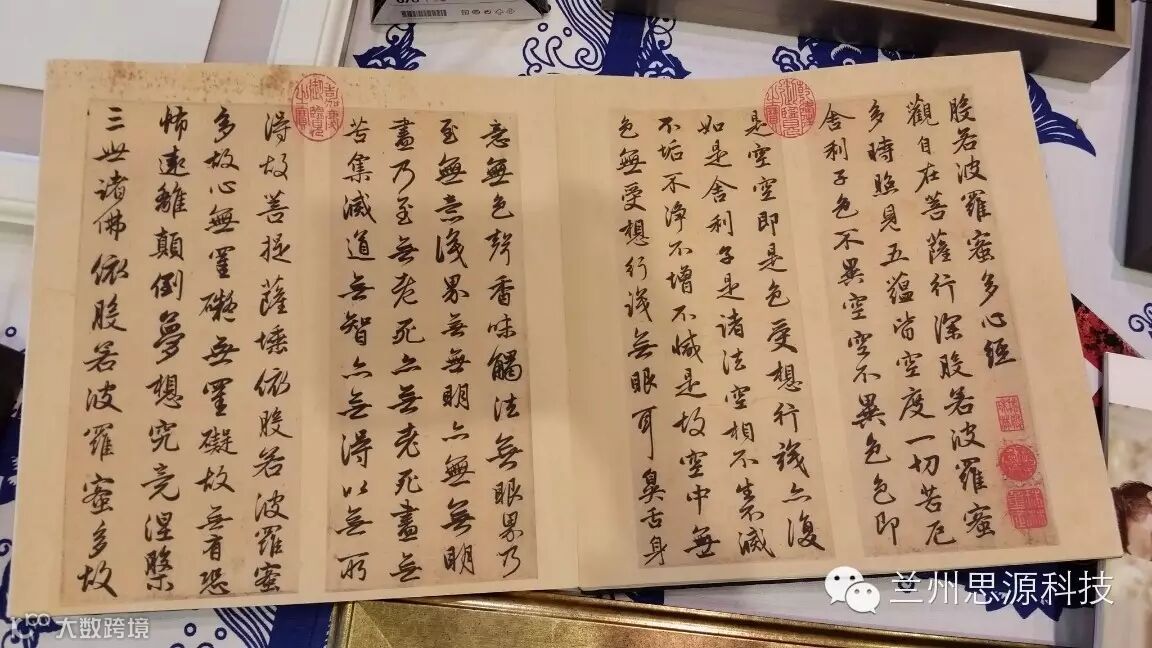 般若波羅蜜多心經
觀自在菩薩行深般若波羅蜜
多時照見五蘊皆空度一切苦厄
舍利子色不異空空不異色色即
是空空即是色受想行識亦復
如是舍利子是諸法空相不生不滅
不垢不淨不增不減是故空中無
色無受想行識無眼耳鼻舌身
意無色聲香味觸法無眼界乃
至無意識界無無明亦無無明
盡乃至無老死亦無老死盡無
苦集滅道無智亦無得以無所
得故菩提薩埵依般若波羅蜜
多故心無罣礙無罣礙故無有恐
怖遠離顛倒夢想究竟涅槃
三世諸佛依般若波羅蜜多故
乾隆御覽之寶
嘉慶御覽之寶
兰州思源科技
大数跨境